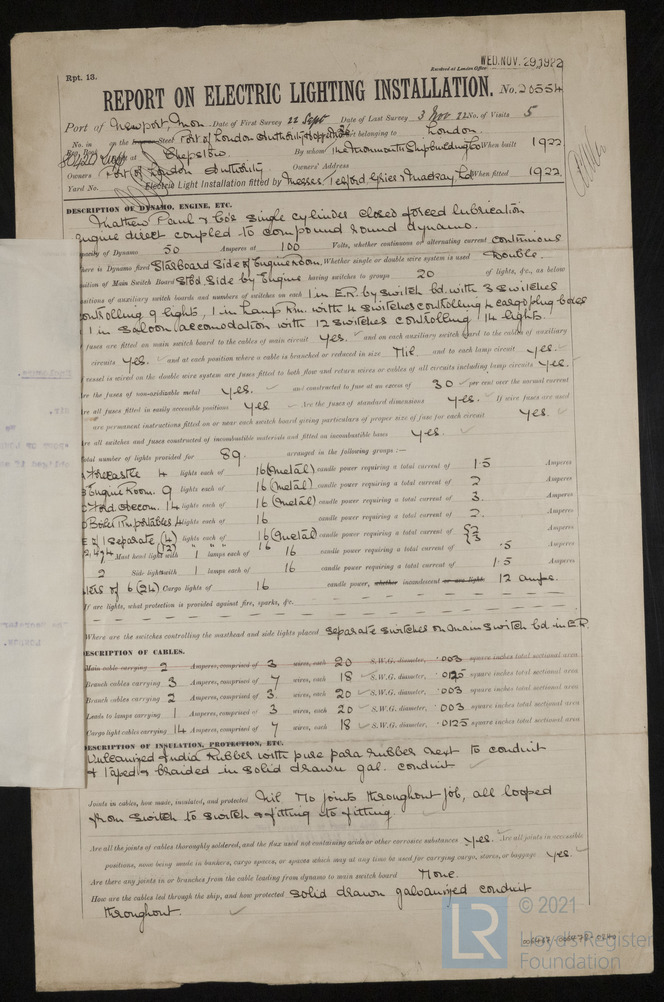 WED. NOV. 29, 1922
Rpt. 13.
Received at London Office
REPORT ON ELECTRIC LIGHTING INSTALLATION. No. 20554
Port of Newport, Mon Date of First Survey 22 Sept Date of Last Survey 3 Nov 22 No. of Visits 5
No. in Reg. Book on the Steel Port of London Authority Hopper belonging to London
at Chepstow By whom The Monmouth Shipbuilding Co When built 1922
Owners Port of London Authority Owners' Address
Yard No. Electric Light Installation fitted by Messrs. Telford, Grier & Mackay Ld When fitted 1922
DESCRIPTION OF DYNAMO, ENGINE, ETC.
Mathew Paul & Co's single cylinder closed forced lubrication
engine direct coupled to compound wound dynamo.
of Dynamo 50 Amperes at 100 Volts, whether continuous or alternating current continuous
is Dynamo fixed Starboard Side of Engine Room. Whether single or double wire system is used Double.
of Main Switch Board Stbd. Side by Engine having switches to groups 20 of lights, &c., as below
of auxiliary switch boards and numbers of switches on each 1 in E.R. by switch bd. with 3 switches
controlling 9 lights, 1 in Lamp Rm. with 4 switches controlling 4 cargo plug boxes
1 in saloon accomodation with 12 switches controlling 14 lights.
fuses are fitted on main switch board to the cables of main circuit yes. and on each auxiliary switch board to the cables of auxiliary
circuits yes. and at each position where a cable is branched or reduced in size Nil and to each lamp circuit yes.
vessel is wired on the double wire system are fuses fitted to both flow and return wires or cables of all circuits including lamp circuits yes.
Are the fuses of non-oxidizable metal yes. and constructed to fuse at an excess of 30 per cent over the normal current
Are all fuses fitted in easily accessible positions yes Are the fuses of standard dimensions yes. If wire fuses are used
are permanent instructions fitted on or near each switch board giving particulars of proper size of fuse for each circuit yes.
Are all switches and fuses constructed of incombustible materials and fitted on incombustible bases yes.
Total number of lights provided for 89. arranged in the following groups :—
A Forecastle 4 lights each of 16 (metal) candle power requiring a total current of 1·5 Amperes
B Engine Room. 9 lights each of 16 (metal) candle power requiring a total current of 2 Amperes
14 lights each of 16 (metal) candle power requiring a total current of 3. Amperes
D Boiler Rm portables 4 lights each of 16 candle power requiring a total current of 2. Amperes
E 1 separate (4) lights each of 16 (metal) candle power requiring a total current of 2 Amperes
(12) " " " 16 3
Mast head light with 1 lamps each of 16 candle power requiring a total current of ·5 Amperes
2 Side lights with 1 lamps each of 16 candle power requiring a total current of 1·5 Amperes
of 6 (24) Cargo lights of 16 candle power, whether incandescent or arc light 12 amps.
If arc lights, what protection is provided against fire, sparks, &c.
Where are the switches controlling the masthead and side lights placed separate switches on main switch bd. in E.R.
DESCRIPTION OF CABLES.
Main cable carrying 2 Amperes, comprised of 3 wires, each 20 S.W.G. diameter, ·003 square inches total sectional area
Branch cables carrying 3 Amperes, comprised of 7 wires, each 18 S.W.G. diameter, ·0125 square inches total sectional area
Branch cables carrying 2 Amperes, comprised of 3. wires, each 20 S.W.G. diameter, ·003 square inches total sectional area
Leads to lamps carrying 1 Amperes, comprised of 3 wires, each 20 S.W.G. diameter, ·003. square inches total sectional area
Cargo light cables carrying 14 Amperes, comprised of 7 wires, each 18 S.W.G. diameter, ·0125 square inches total sectional area
DESCRIPTION OF INSULATION, PROTECTION, ETC.
Vulcanized India Rubber with pure para rubber next to conduit
& Taped & braided in solid drawn gal. conduit
Joints in cables, how made, insulated, and protected Nil No joints throughout job, all looped
from switch to switch & fitting to fitting
Are all the joints of cables thoroughly soldered, and the flux used not containing acids or other corrosive substances yes. Are all joints in accessible
positions, none being made in bunkers, cargo spaces, or spaces which may at any time be used for carrying cargo, stores, or baggage yes.
Are there any joints in or branches from the cable leading from dynamo to main switch board None.
How are the cables led through the ship, and how protected solid drawn galvanized conduit
throughout.
LR © 2021
Lloyd's Register
Foundation